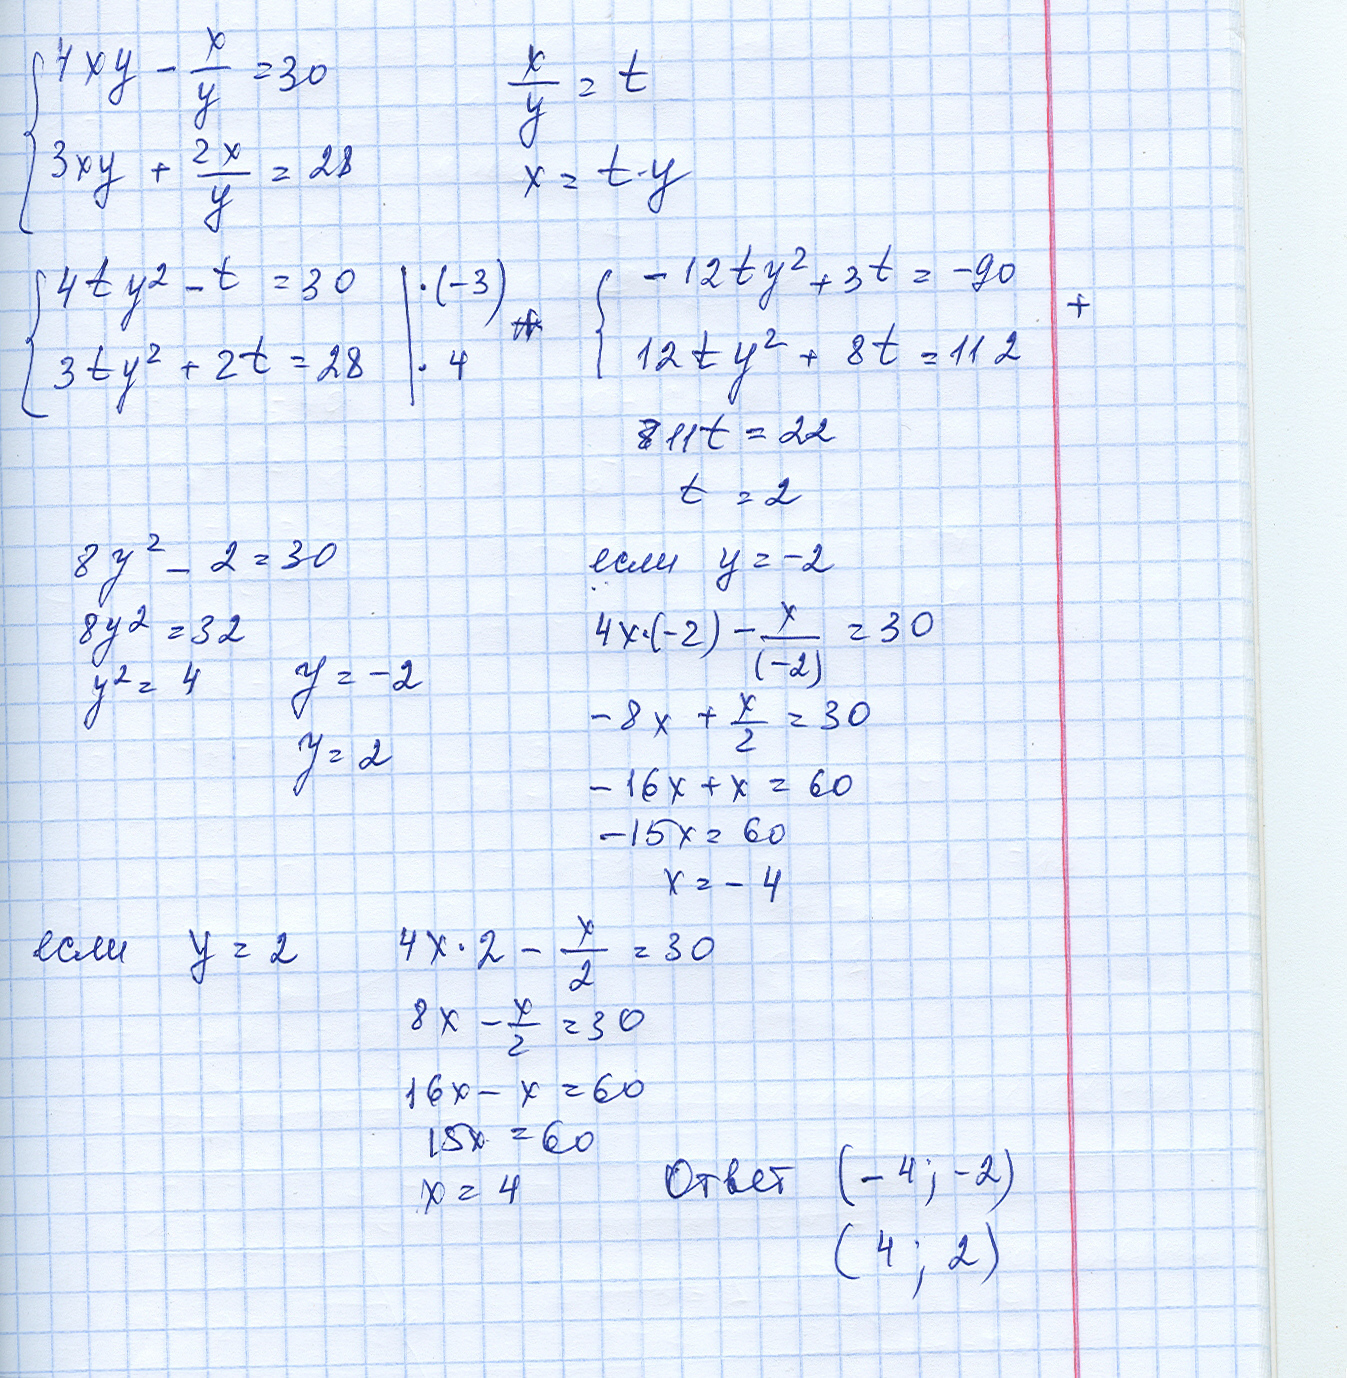 4xy - x/y = 30
3xy + 2x/y = 28
x/y = t
x = t·y
4ty² - t = 30 | ·(-3)
3ty² + 2t = 28 | ·4
-12ty² + 3t = -90
+
12ty² + 8t = 112
11t = 22
t = 2
8y² - 2 = 30
8y² = 32
y² = 4
y = -2
y = 2
если y = -2
4x·(-2) - x/(-2) = 30
-8x + x/2 = 30
-16x + x = 60
-15x = 60
x = -4
если y = 2
4x·2 - x/2 = 30
8x - x/2 = 30
16x - x = 60
15x = 60
x = 4
Ответ (-4; -2)
(4; 2)